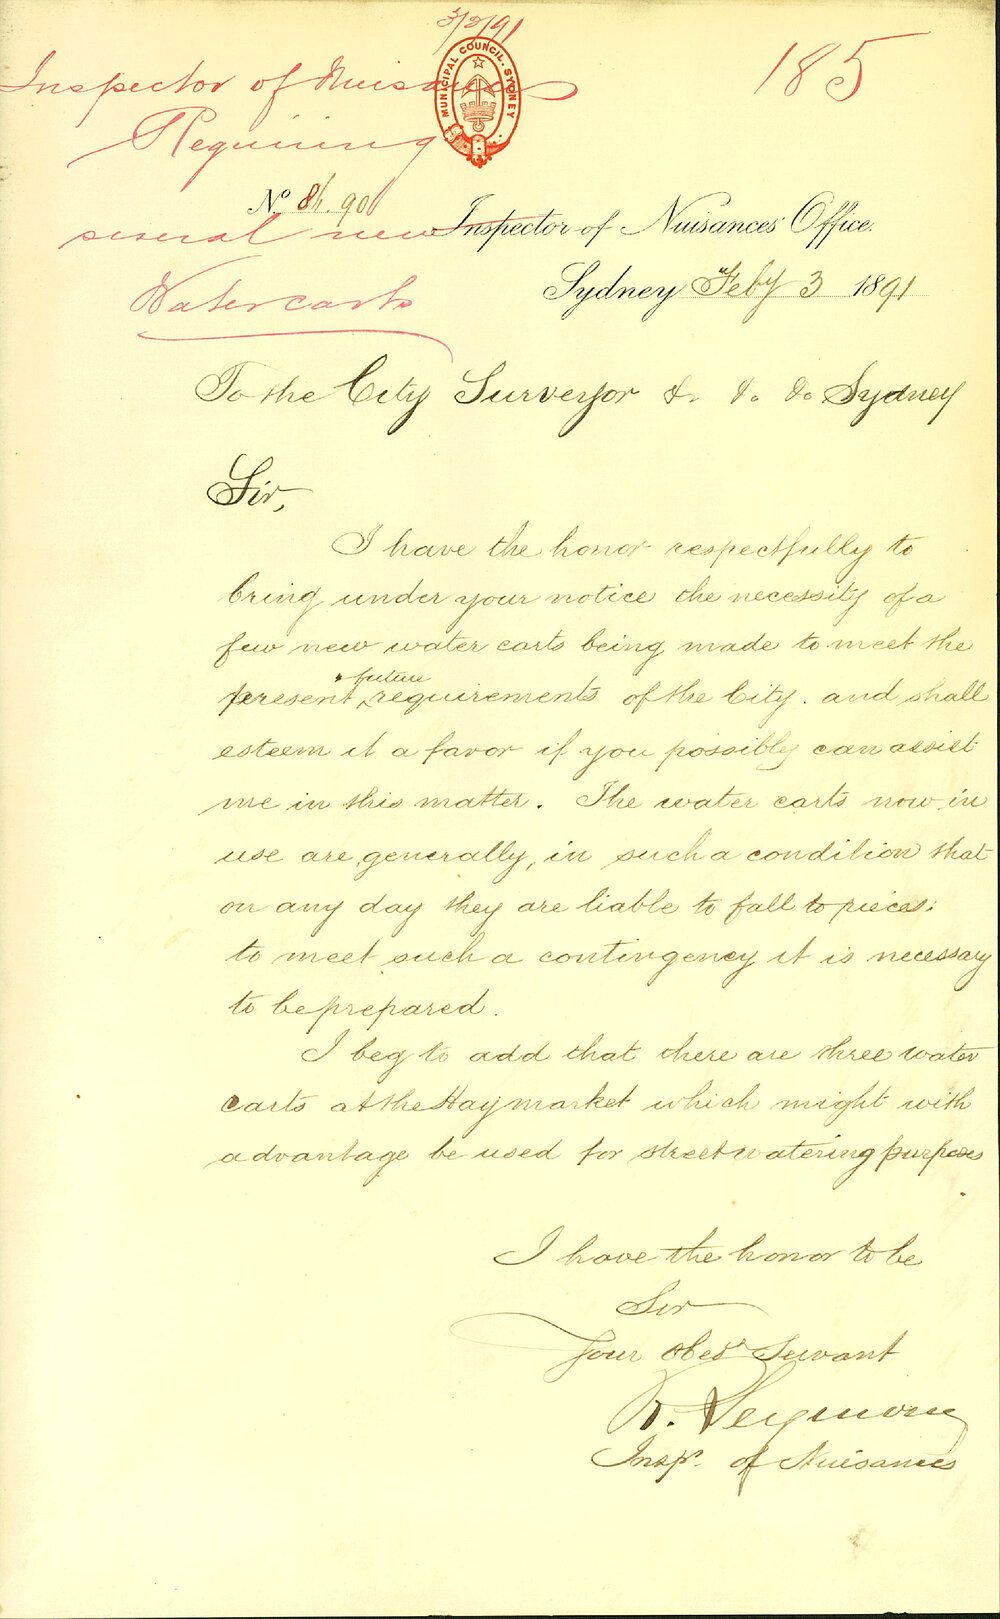 3/2/91
185
Inspector of Nuisances
Requiring
several new
Watercarts
MUNICIPAL COUNCIL. SYDNEY
No 81.90
Inspector of Nuisances' Office.
Sydney Feby 3 1891
To the City Surveyor &. &. &. Sydney
Sir,
I have the honor respectfully to
bring under your notice the necessity of a
few new water carts being made to meet the
present & future requirements of the City. and shall
esteem it a favor if you possibly can assist
me in this matter. The water carts now in
use are, generally, in such a condition that
on any day they are liable to fall to pieces:
to meet such a contingency it is necessary
to be prepared.
I beg to add that there are three water
carts at the Haymarket which might with
advantage be used for street watering purposes
.
I have the honor to be
Sir
Your Obedt Servant
R. Seymour
Inspr. of Nuisances